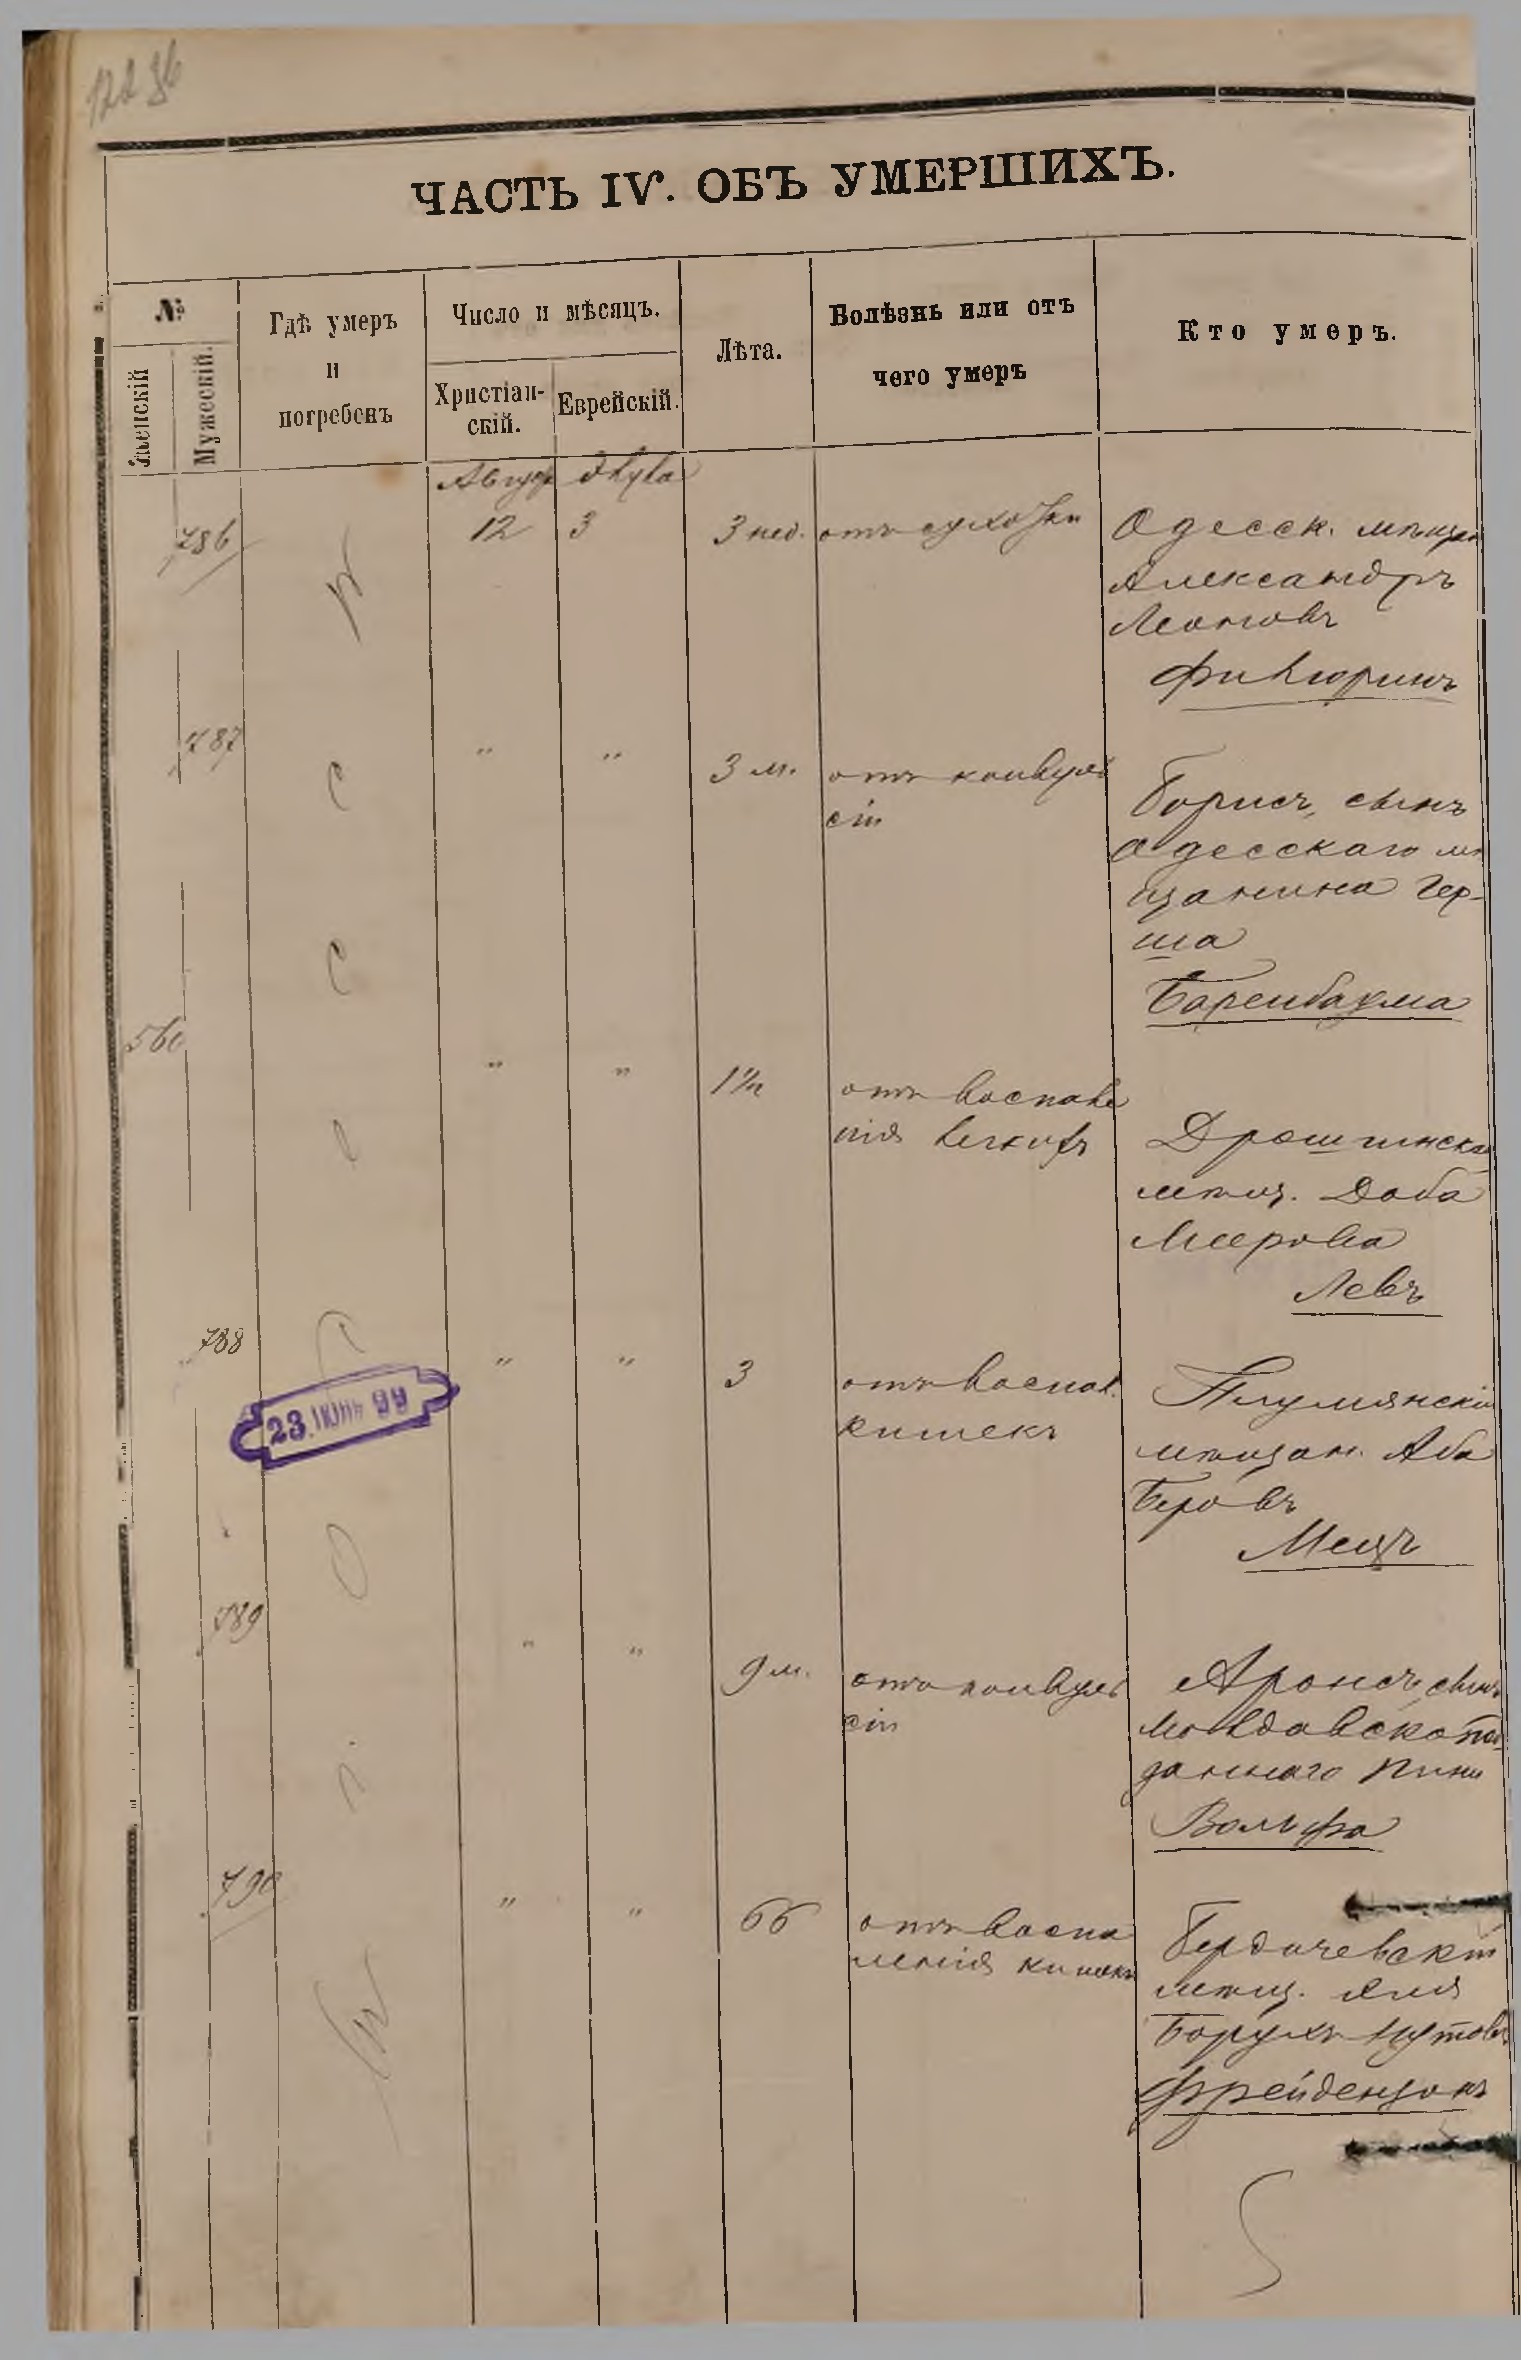 ЧАСТЬ IV. ОБЪ УМЕРШИХЪ.
№
Женскій
Мужескій.
Гдѣ умеръ
и
погребенъ
Число и мѣсяцъ.
Христіан-
скій.
Еврейскій.
Лѣта.
Болѣзнь или отъ
чего умеръ
Кто умеръ.
Август Элула
786
12
3
3 нед.
отъ сухотки
Одесск. мѣщан
Александръ
Леоновъ
787
"
"
3 м.
отъ конвуль
сіи
Борисъ, сынъ
Одесскаго мѣ
щанина Гер-
ша
Баренбаума
560
"
"
1½
отъ воспале
нія легкихъ
мѣщ. Доба
Меерова
Левъ
788
"
"
3
отъ воспал.
кишекъ
мѣщан. Аба
Беровъ
Мецъ
23 ІЮНЬ 99
789
"
"
9 м.
отъ конвуль
сіи
Аронъ сынъ
молдавскопод
даннаго Пини
Вольфа
790
"
"
66
отъ воспа
ленія кишекъ
Бердичевскій
мѣщ.
Борухъ
Фрейдензонъ